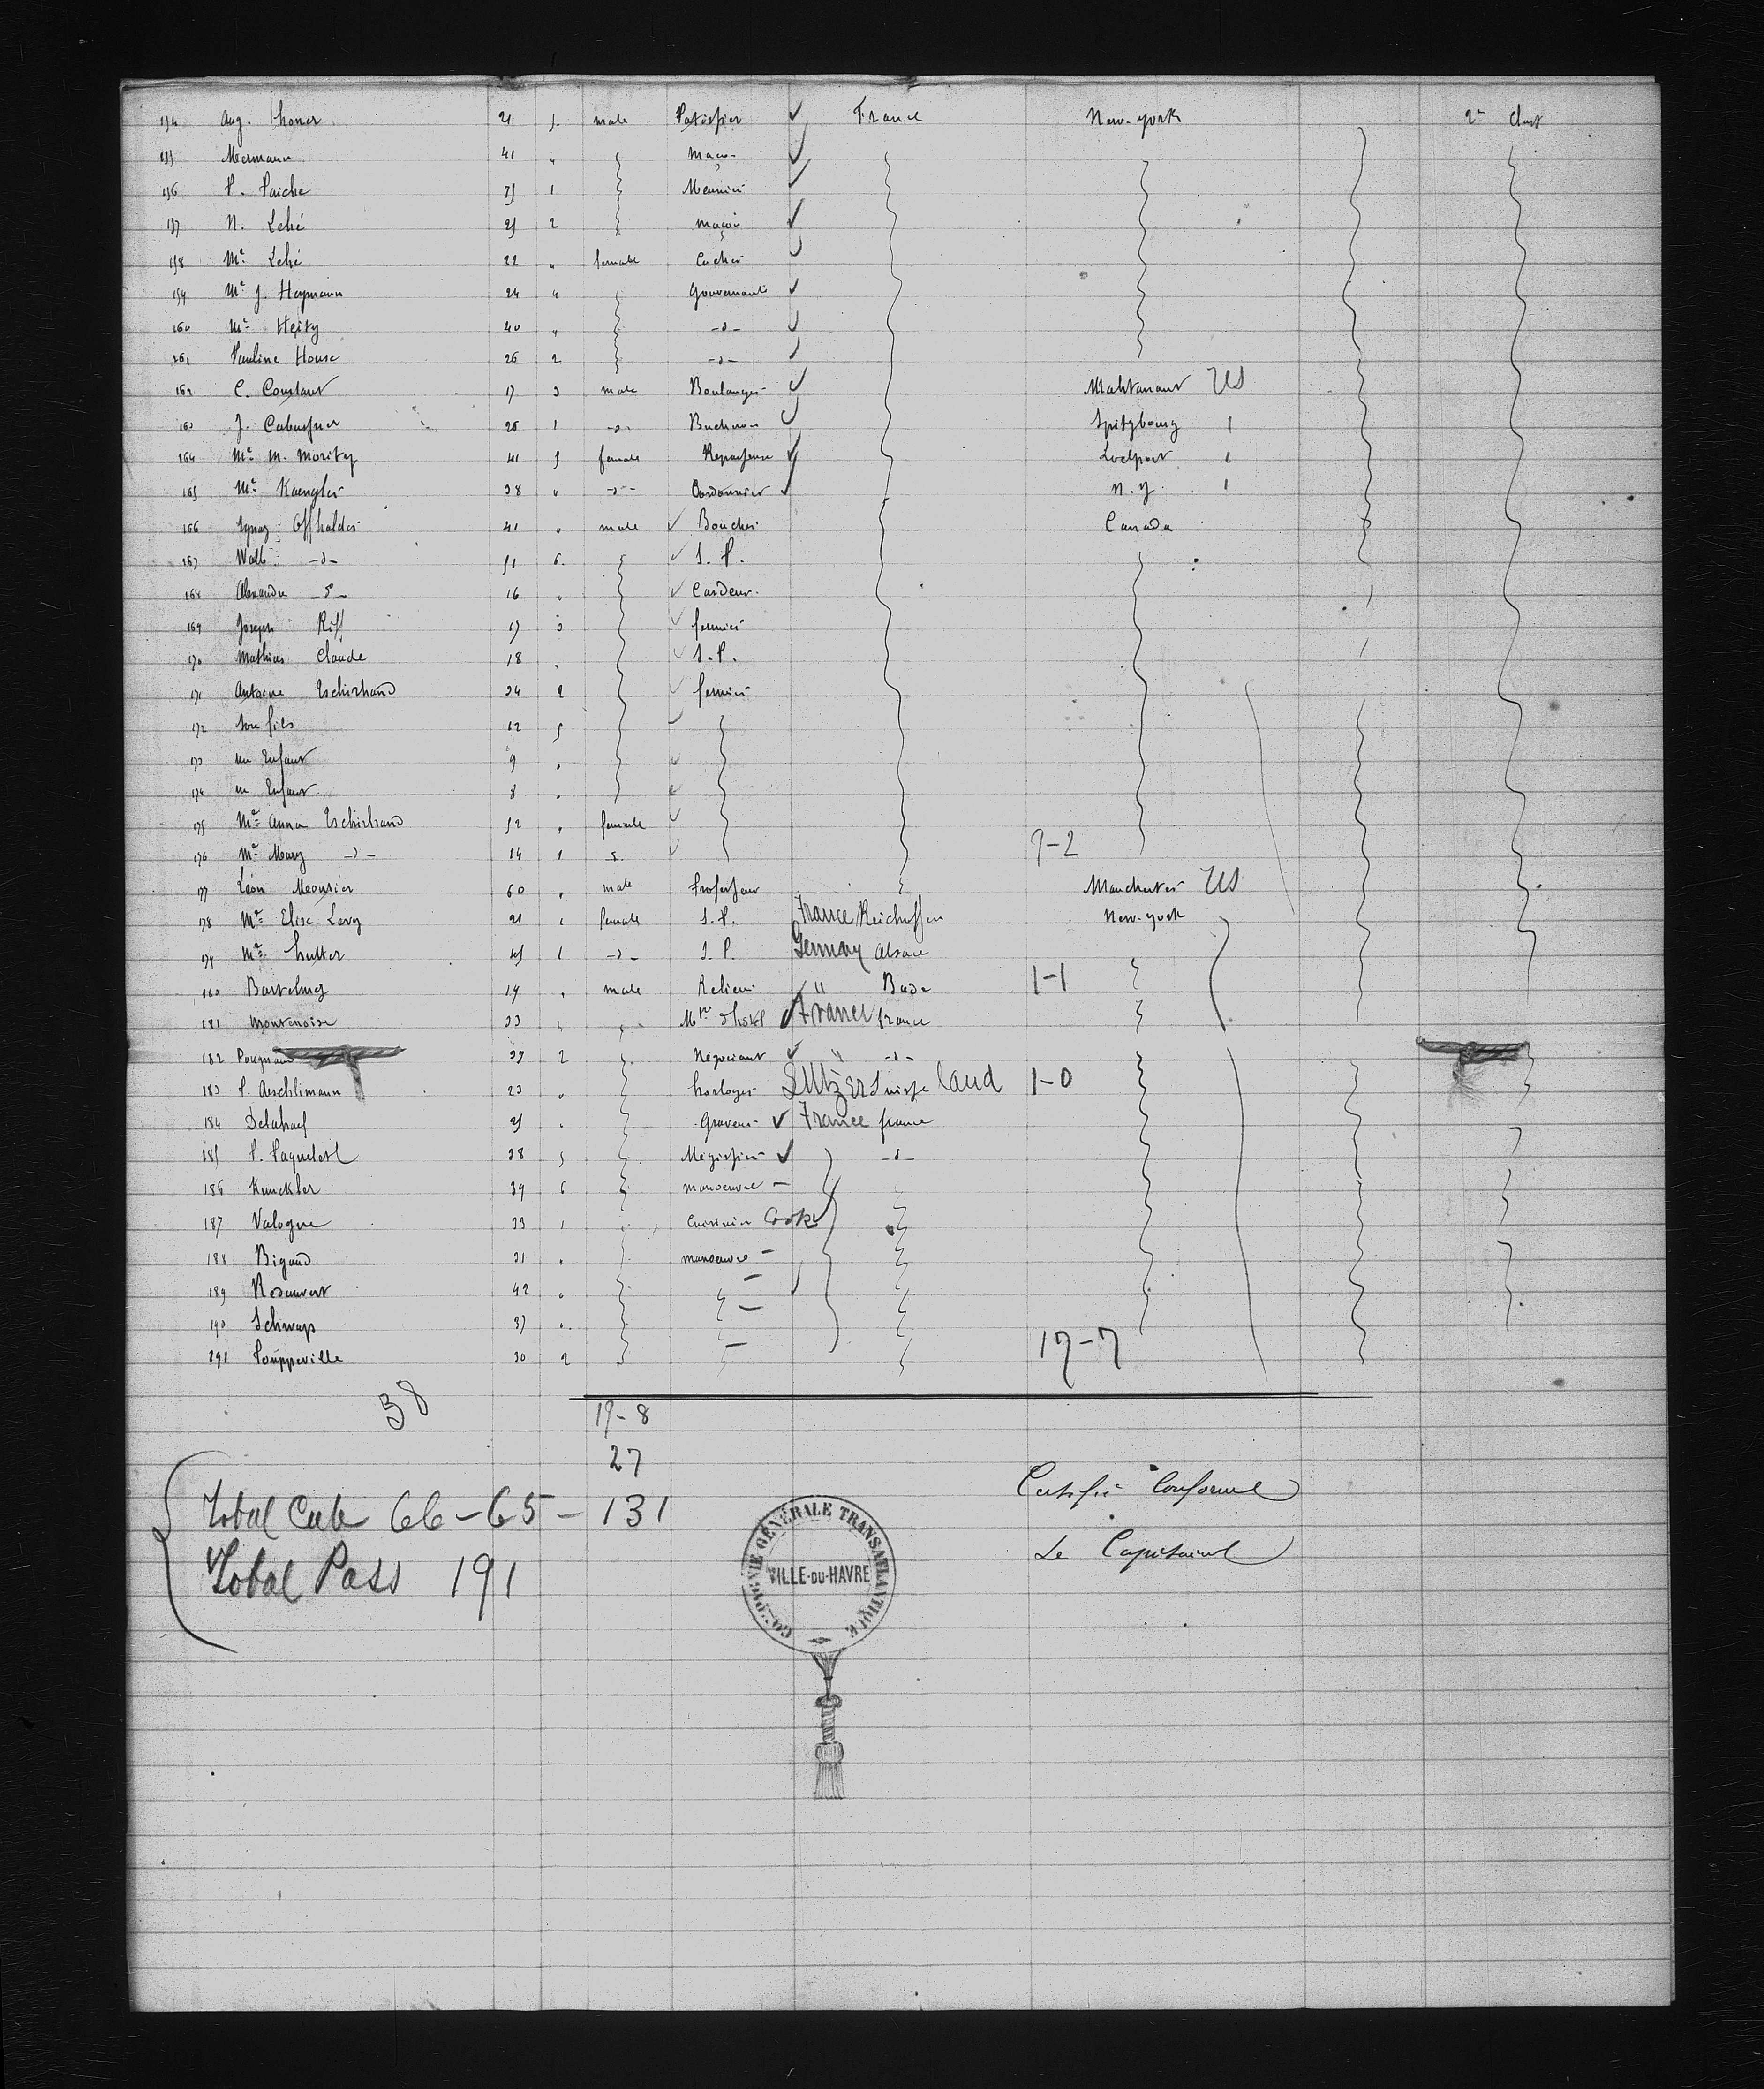 154 Aug. honer 21 5. male Patissier ✓ France New-york 2e Class
155 Mermann 41 " Maçon ✓
156 P. Paiche 35 1 Meunier ✓
157 N. Lehé 25 2 maçon ✓
158 Me Lehé 22 " female ✓
159 Me J. Heymann 24 " Gouvernante ✓
160 Me Heity 40 " -d- ✓
161 Pauline House 26 2 -d- ✓
162 C. Constant 17 3 male Boulanger ✓ US
163 J. 26 1 -d- Bucheron ✓ Spitzbourg
164 Me M. Moritz 41 5 female Repasseuse ✓
165 Me Kaengler 38 " -d- Cordonnier ✓ N.Y.
166 Ignaz Offhalder 41 " male ✓ Boucher Canada
167 Walb -d- 51 6 ✓ S. P.
168 Alexandre -d- 16 " ✓ Cardeur
169 Joseph Riff 17 3 ✓ fermier
170 Mathias Claude 18 . ✓ S. P.
171 Antoine Eschirhand 34 2 ✓ fermier
172 Son fils 12 5 ✓
173 un Enfant 9 . ✓
174 un Enfant 8 . ✓
175 Me Anna Eschirhand 52 . female ✓
176 Me Mary -d- 14 1 ✓ 9-2
177 Léon Meousier 60 . male Professeur Manchester US
178 Me Elise Levy 21 . female S. P. France Reichoffen New-york
179 Me hutter 45 1 -d- S. P. Germany Alsace
180 Bartelmy 19 . male Relieur " Bade 1-1
181 Montenoise 33 Mtre d'hotel ✓ France france
182 39 2 Négociant ✓ " -d-
183 P. Aeschlimann 23 . horloger Switzer Suisse land 1-0
184 Delahaef 25 . Graveur ✓ France france
185 P. Paquelet 28 5 Mégissier ✓ -d-
186 Kunckler 39 6 manoeuvre -
187 Valogne 33 1 Cuisinier Cook
188 Bigaud 31 . manoeuvre -
189 Rosanvert 42 . -
190 Schwap 37 . -
191 Pouppeville 30 2 - 17-7
38
19-8
27
Certifié Conforme
Total Cab 66-65-131
Le Capitaine
Total Pass 191
COMPAGNIE GÉNÉRALE TRANSATLANTIQUE
VILLE-DU-HAVRE